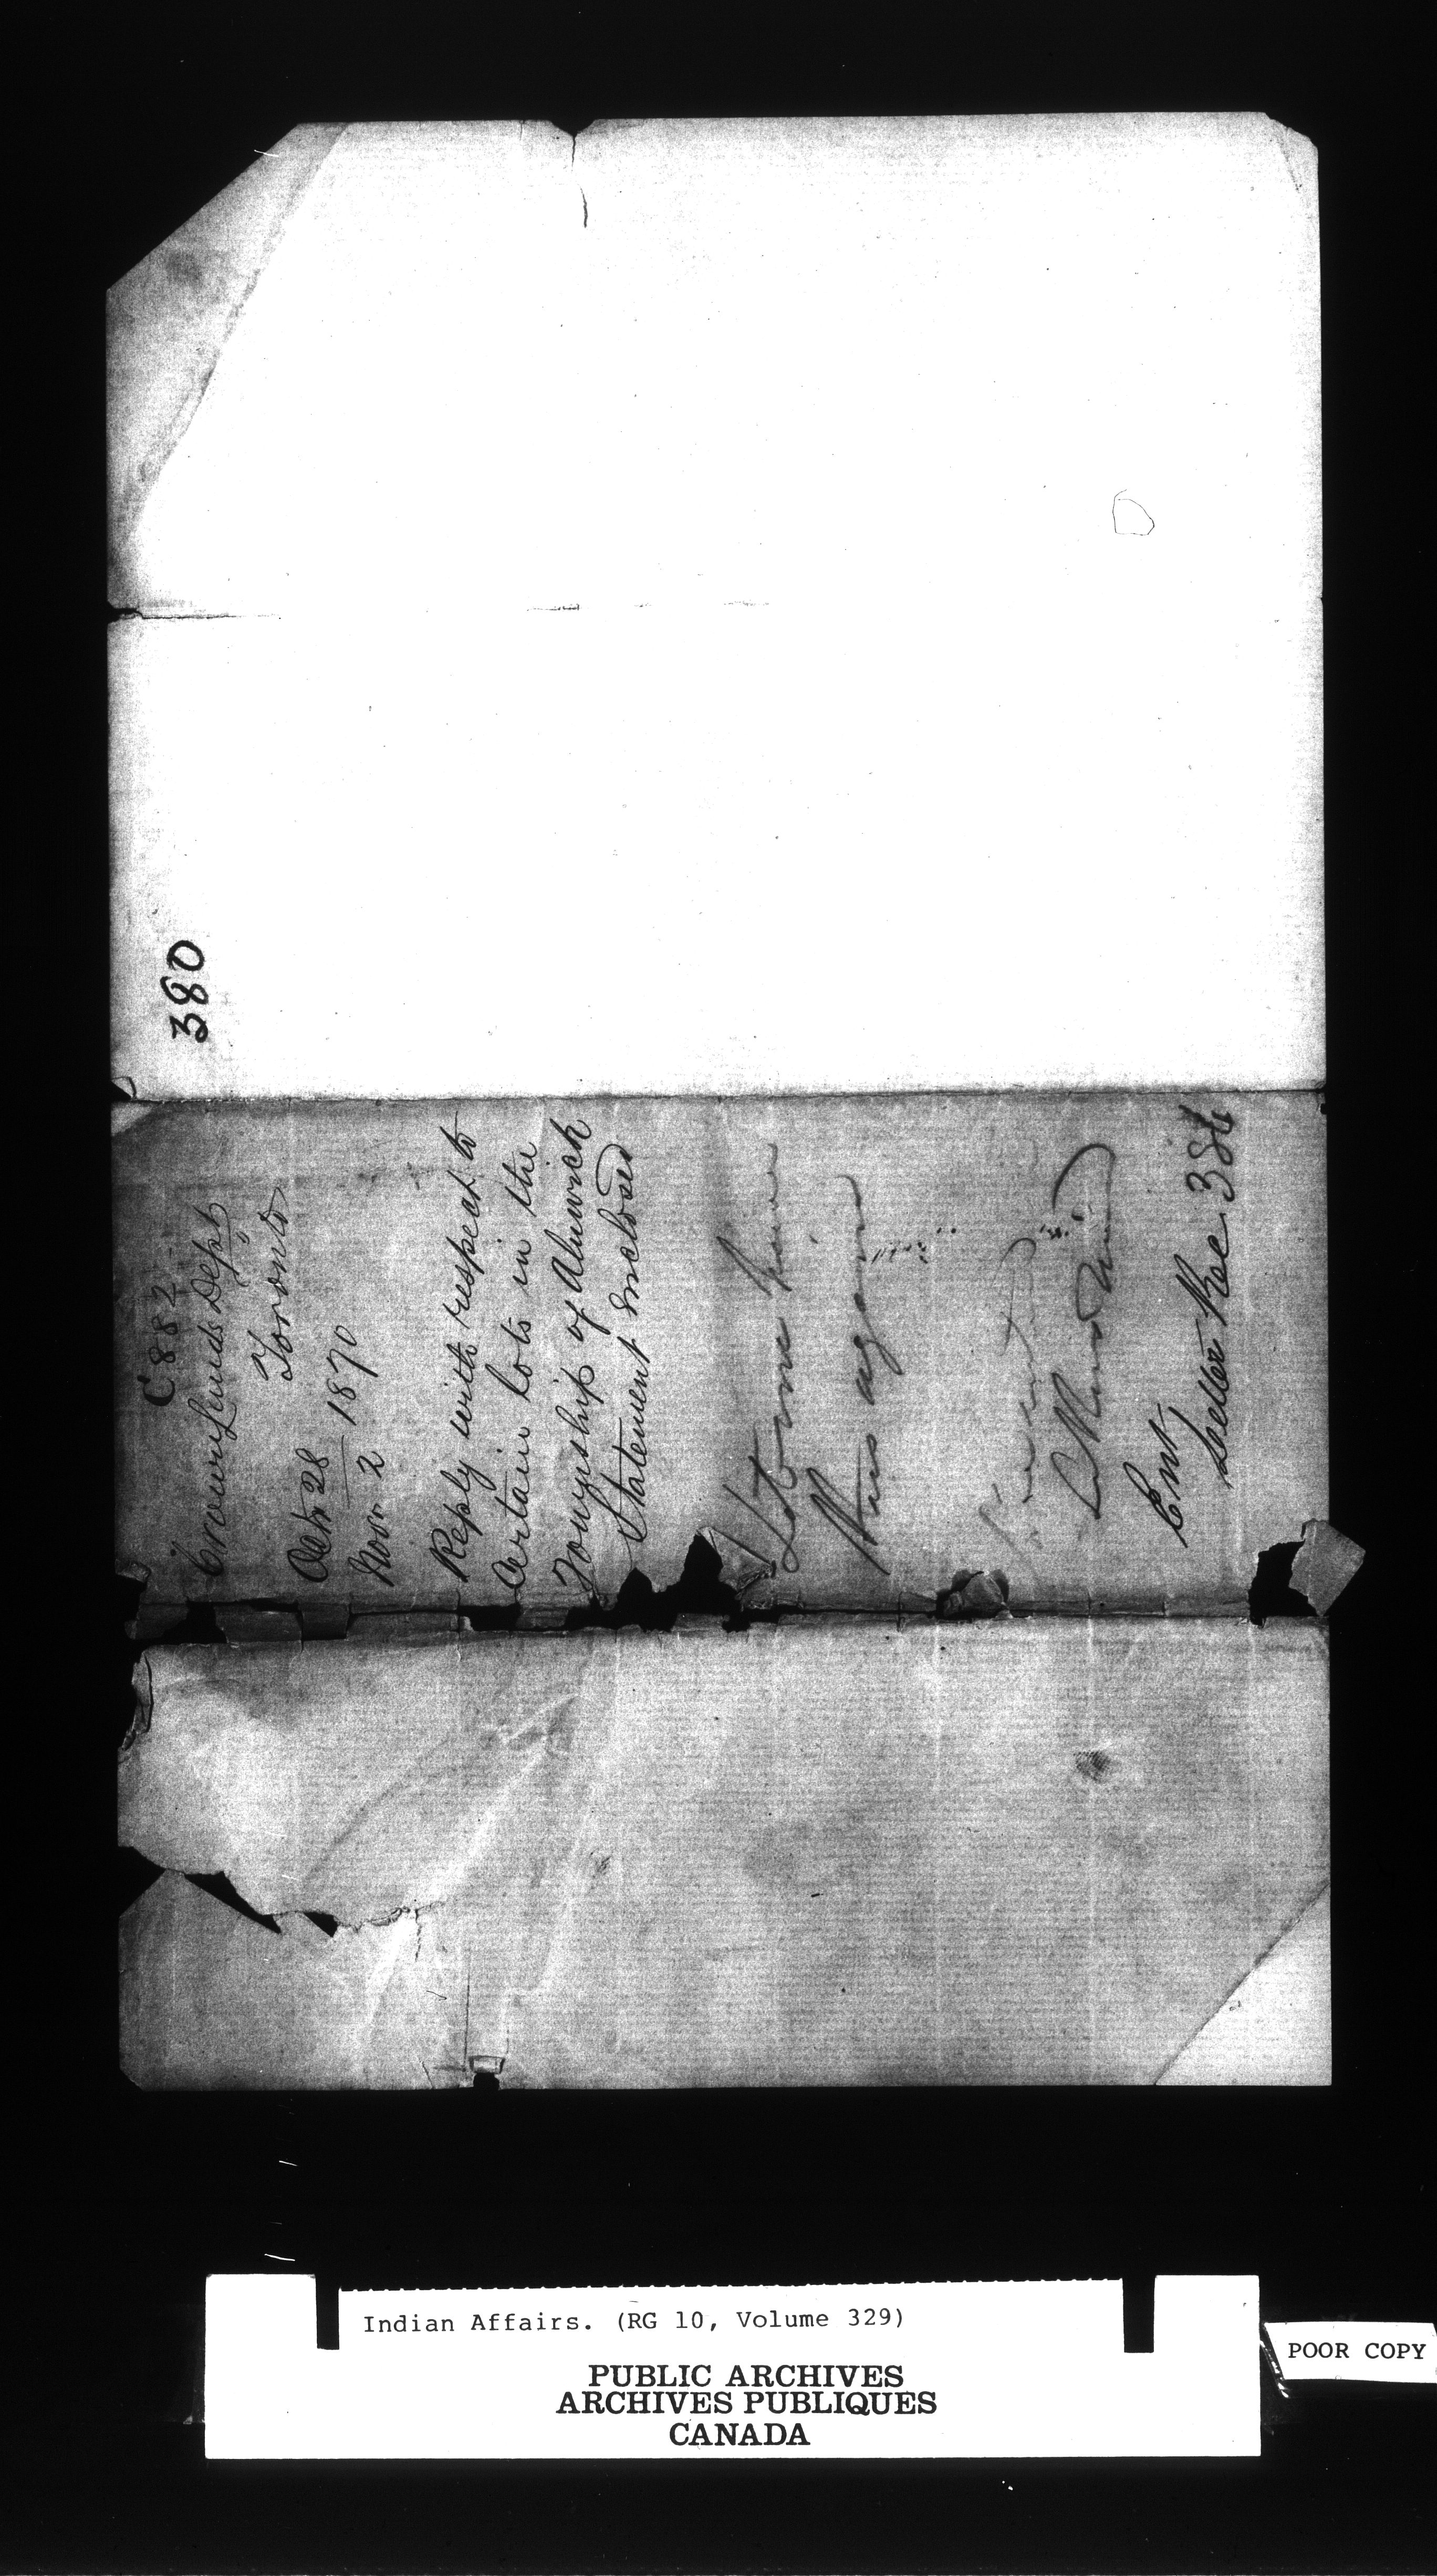 380
C. 882
Crown Lands Dept
Toronto
Octr 28
1870
Novr 2
Reply with respect to
Certain Lots in the
Township of Alnwick
Statement Enclosed
Let me have
this again
Ent
Letter Rec. 386
Indian Affairs. (RG 10, Volume 329)
PUBLIC ARCHIVES
ARCHIVES PUBLIQUES
CANADA
POOR COPY